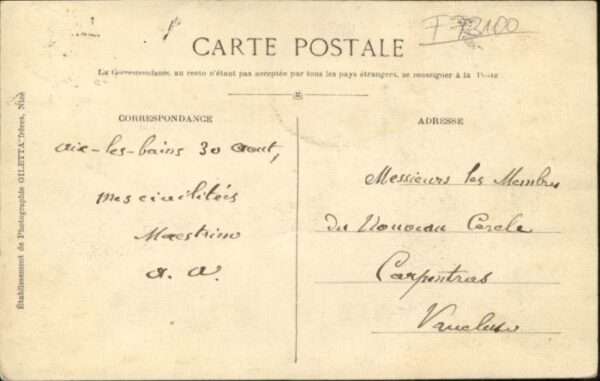 F 73100
CARTE POSTALE
La Correspondance au recto n'étant pas acceptée par tous les pays étrangers, se renseigner à la Poste
CORRESPONDANCE
Aix-les-bains 30 Aout,
mes civilités
Maestrino
a. a.
ADRESSE
Messieurs les Membres
du Nouveau Cercle
Carpentras
Vaucluse
Établissement de Photographie GILETTA frères, Nice